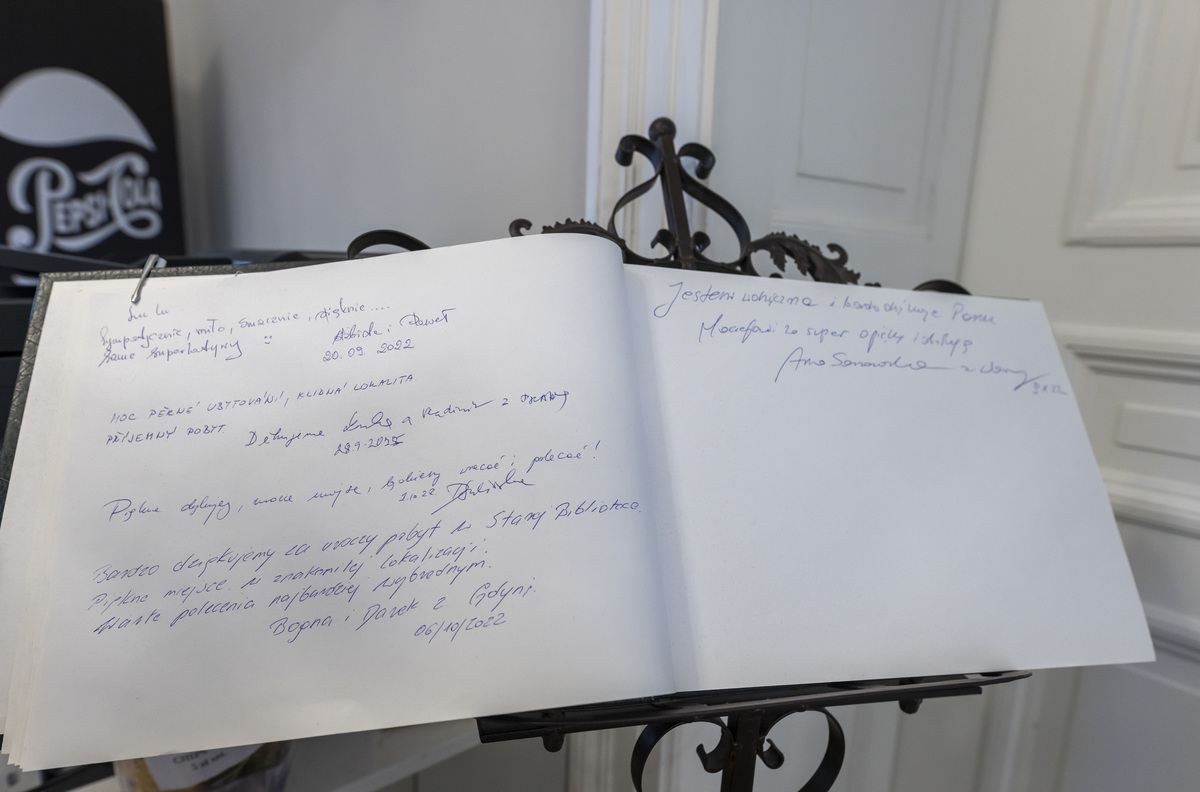 PEPSI-COLA
Sympatycznie, miło, smacznie, pięknie....
Same superlatywy
i Paweł
20.09.2022
MOC PĚKNÉ UBYTOVÁNÍ, KLIDNÁ LOKALITA
PŘÍJEMNÝ POBYT
Děkujeme a Radimír z
29.9.2022
Pięknie dziękuję, miejsce, wracać i polecać!
1.10.22
Bardzo dziękujemy za uroczy pobyt w Starej Bibliotece.
Piękne miejsce w znakomitej lokalizacji.
Warte polecenia najbardziej wybrednym.
Bogna i Darek z Gdyni.
06/10/2022
Jestem i bardzo dziękuję Panu
za super opiekę i obsługę
Anna z
5 zł